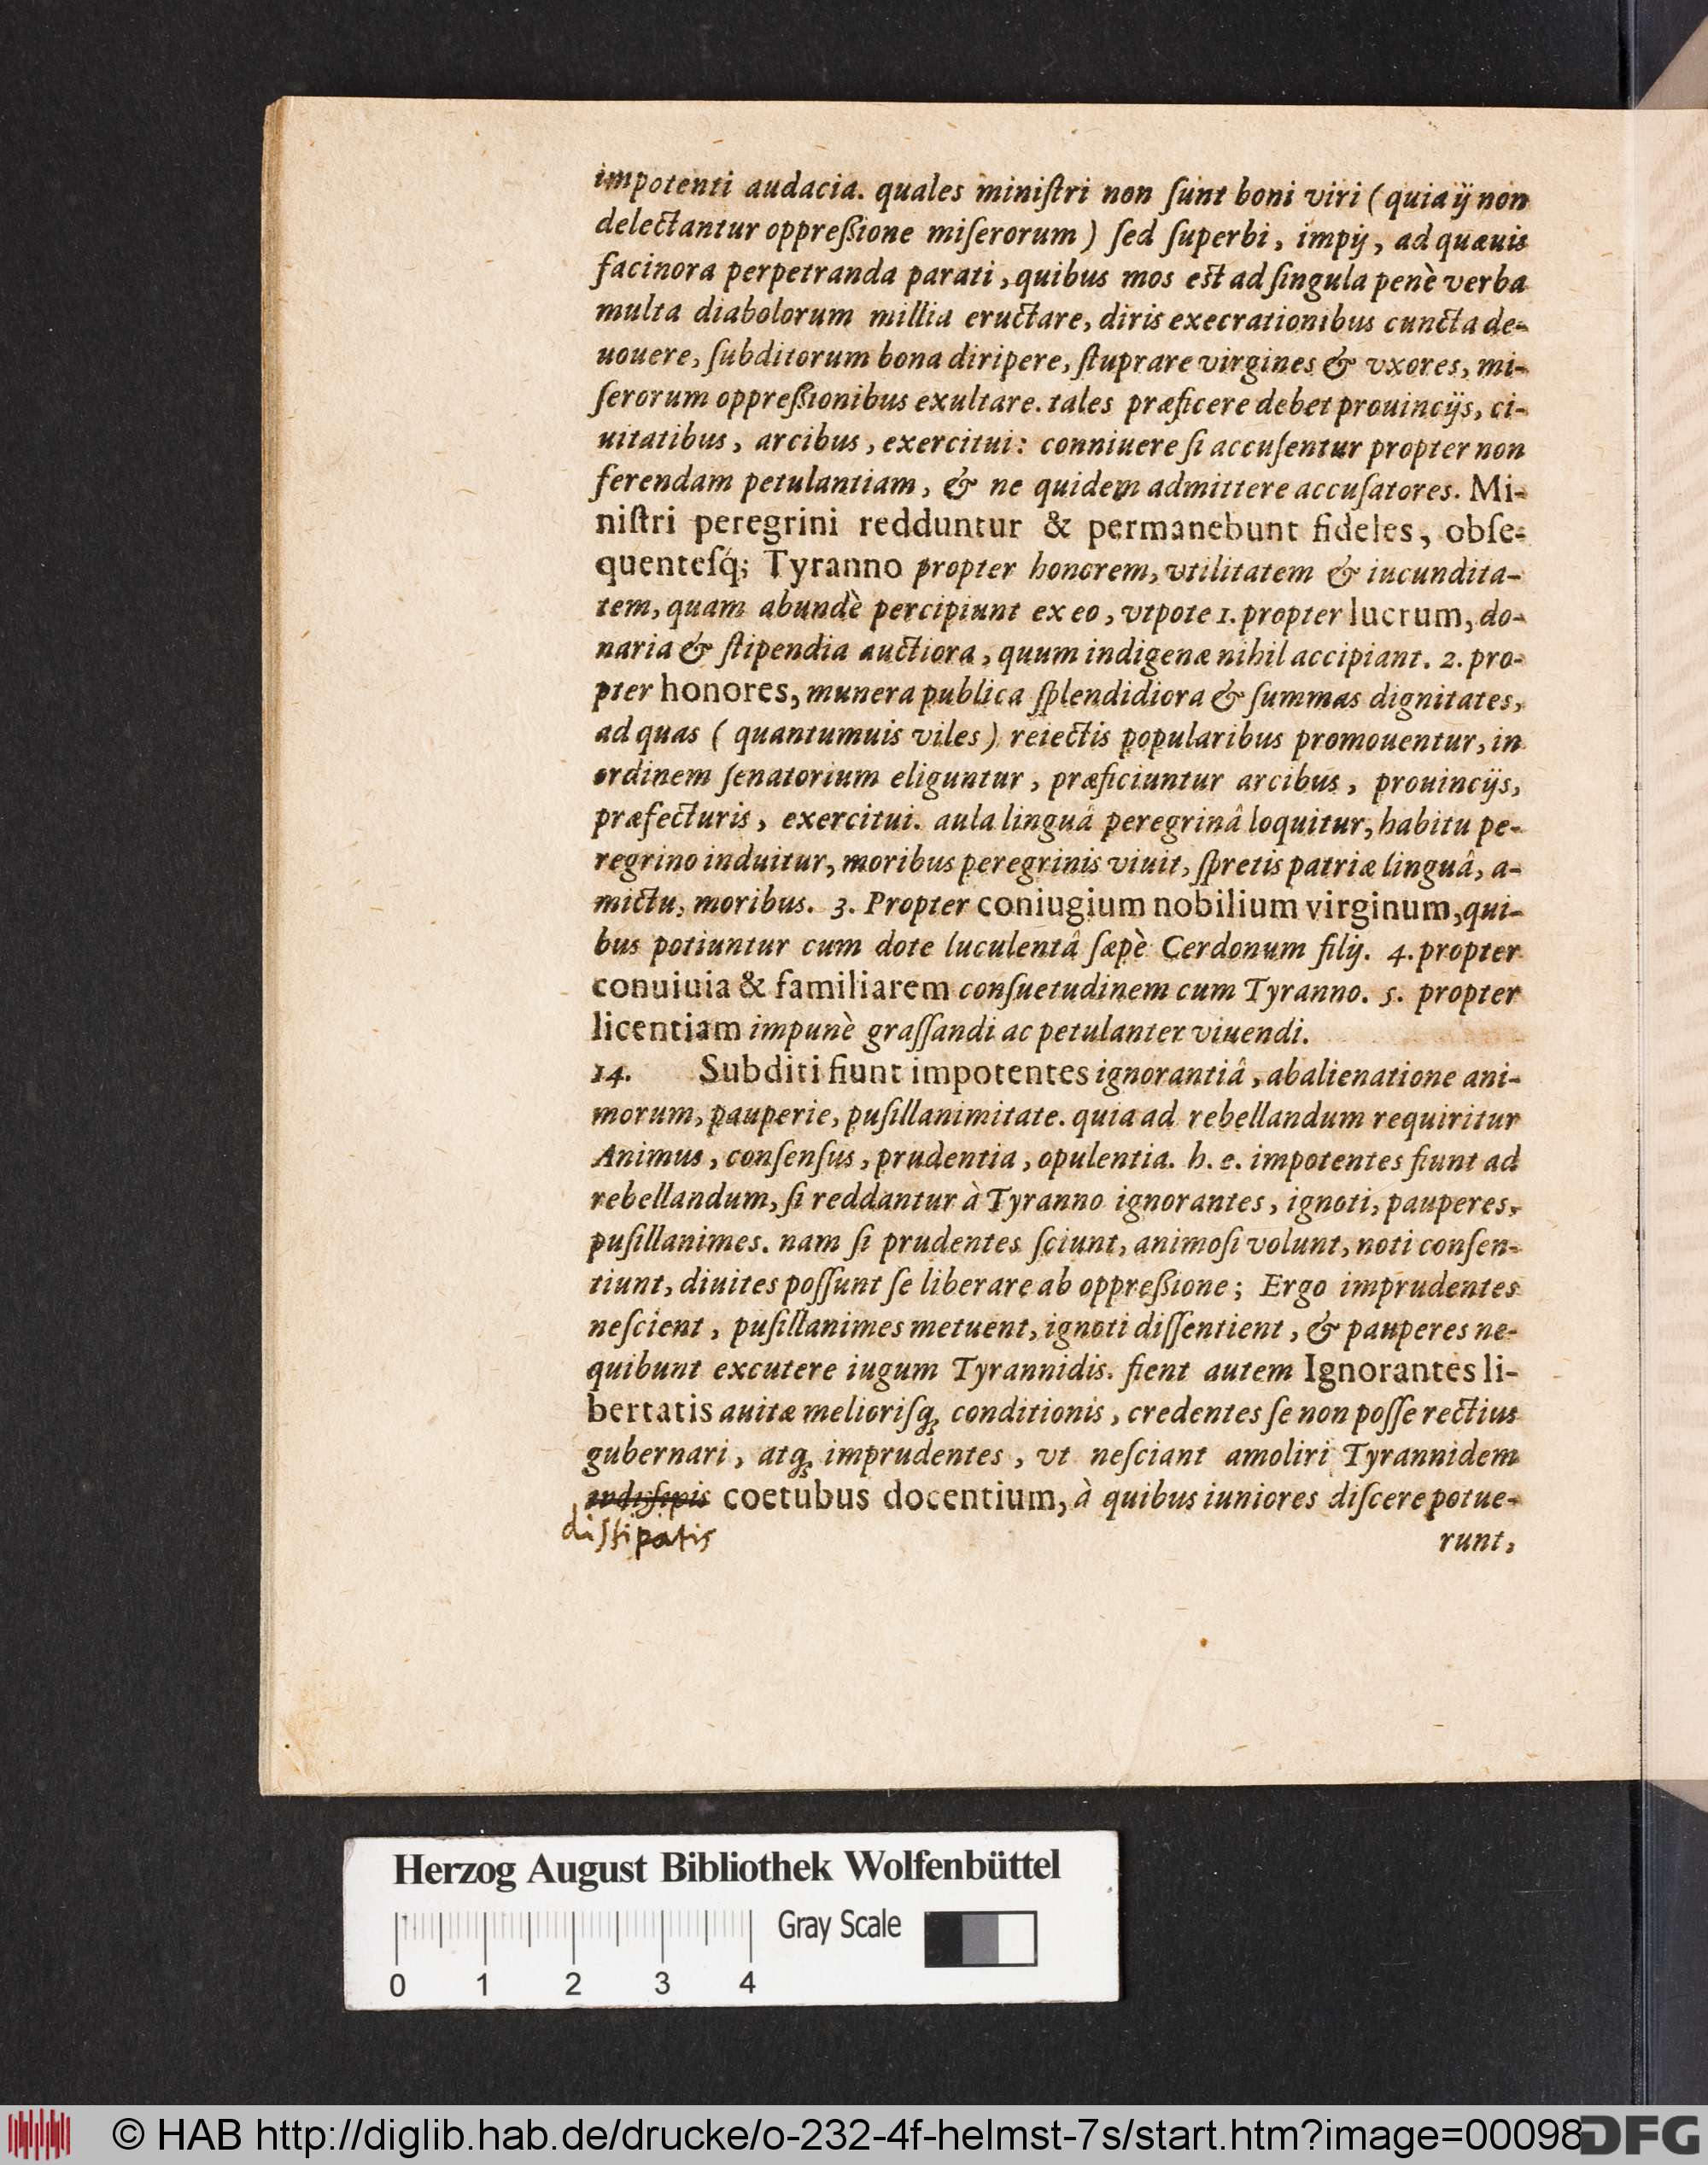 impotenti audacia. quales miniſtri non ſunt boni viri ( quia ij non
delectantur oppreßione miſerorum ) ſed ſuperbi, impij, ad quæuis
facinora perpetranda parati, quibus mos eſt ad ſingula penè verba
multa diabolorum millia eructare, diris execrationibus cuncta de-
uouere, ſubditorum bona diripere, ſtuprare virgines & vxores, mi-
ſerorum oppreßionibus exultare. tales præficere debet prouincijs, ci-
uitatibus, arcibus, exercitui: conniuere ſi accuſentur propter non
ferendam petulantiam, & ne quidem admittere accuſatores. Mi-
niſtri peregrini redduntur & permanebunt fideles, obſe-
quenteſq́; Tyranno propter honorem, vtilitatem & iucundita-
tem, quam abundè percipiunt ex eo, vtpote 1. propter lucrum, do-
naria & ſtipendia auctiora, quum indigenæ nihil accipiant. 2. pro-
pter honores, munera publica ſplendidiora & ſummas dignitates,
ad quas ( quantumuis viles ) reiectis popularibus promouentur, in
ordinem ſenatorium eliguntur, præficiuntur arcibus, prouincijs,
præfecturis, exercitui. aula linguâ peregrinâ loquitur, habitu pe-
regrino induitur, moribus peregrinis viuit, ſpretis patriæ linguâ, a-
mictu, moribus. 3. Propter coniugium nobilium virginum, qui-
bus potiuntur cum dote luculentâ ſæpè Cerdonum filij. 4. propter
conuiuia & familiarem conſuetudinem cum Tyranno. 5. propter
licentiam impunè graſſandi ac petulanter viuendi.
14. Subditi fiunt impotentes ignorantiâ, abalienatione ani-
morum, pauperie, puſillanimitate. quia ad rebellandum requiritur
Animus, conſenſus, prudentia, opulentia. h. e. impotentes fiunt ad
rebellandum, ſi reddantur à Tyranno ignorantes, ignoti, pauperes,
puſillanimes. nam ſi prudentes ſciunt, animoſi volunt, noti conſen-
tiunt, diuites poſſunt ſe liberare ab oppreßione; Ergo imprudentes
neſcient, puſillanimes metuent, ignoti diſſentient, & pauperes ne-
quibunt excutere iugum Tyrannidis. fient autem Ignorantes li-
bertatis auitæ meliorisq; conditionis, credentes ſe non poſſe rectius
gubernari, atq; imprudentes, vt neſciant amoliri Tyrannidem
coetubus docentium, à quibus iuniores diſcere potue-
diſſipatis runt,
Herzog August Bibliothek Wolfenbüttel
Gray Scale
0 1 2 3 4
© HAB http://diglib.hab.de/drucke/o-232-4f-helmst-7s/start.htm?image=00098
DFG